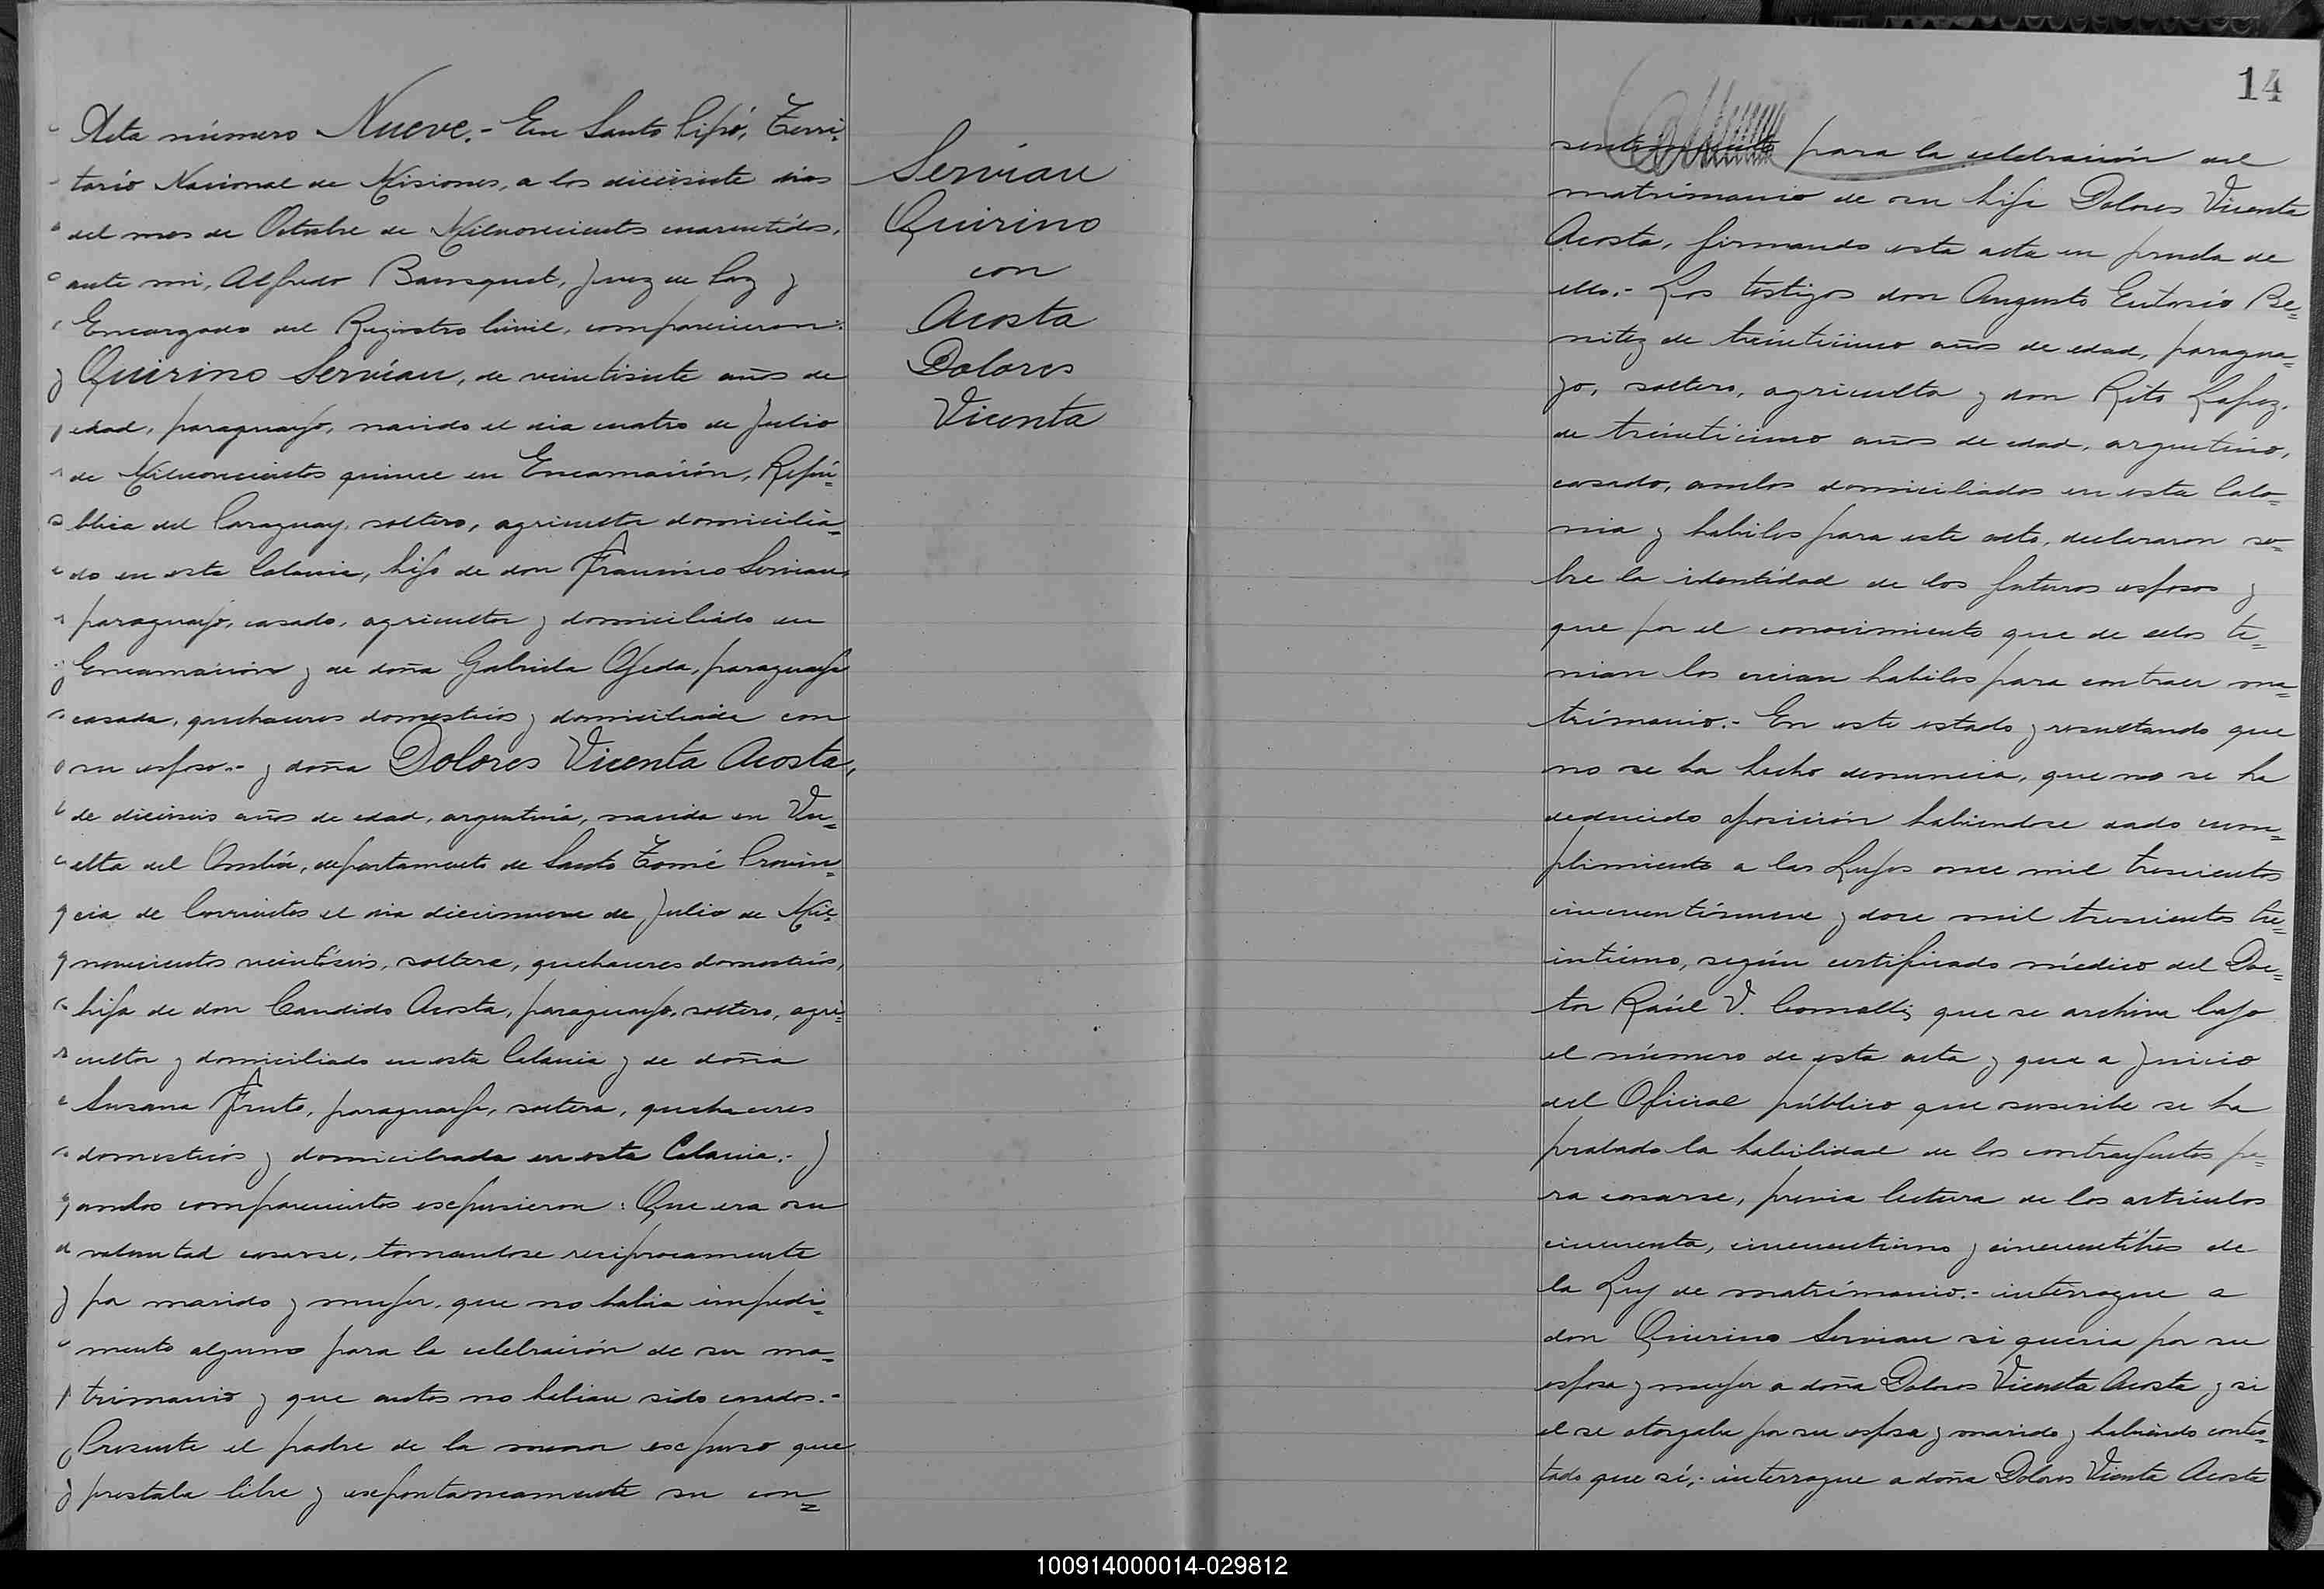 Acta número Nueve.- En Santo Pipó, Terri-
torio Nacional de Misiones, a los diecisiete dias
del mes de Octubre de Milnovecientos cuarentidós,
ante mi, Alfredo Bousquet, Juez de Paz y
Encargado del Registro Civil, comparecieron:
Quirino Servian, de veintisiete años de
edad, paraguayo, nacido el dia cuatro de Julio
de Milnovecientos quince en Encarnación, Repú-
blica del Paraguay, soltero, agricultor domicilia-
do en esta Colonia, hijo de don Francisco Servian,
paraguayo, casado, agricultor y domiciliado en
Encarnación y de doña Gabriela Ojeda, paraguaya
casada, quehaceres domesticos y domiciliada con
su esposo.- y doña Dolores Vicenta Acosta,
de dieciseis años de edad, argentina, nacida en Vu-
elta del Ombú, departamento de Santo Tomé Provin-
cia de Corrientes el dia diecinueve de Julio de Mil-
novecientos veintiseis, soltera, quehaceres domesticos,
hija de don Candido Acosta, paraguayo, soltero, agri-
cultor y domiciliado en esta Colonia y de doña
Susana Fruto, paraguaya, soltera, quehaceres
domesticos y domiciliada en esta Colonia.- y
ambos comparecientes expusieron: Que era su
voluntad casarse, tomandose reciprocamente
por marido y mujer, que no habia impedi-
mento alguno para la celebración de su ma-
trimonio y que antes no habian sido casados.-
Presente el padre de la menor expuso que
prestaba libre y expontaneamente su con-
Servian
Quirino
con
Acosta
Dolores
Vicenta
14
sentimiento para la celebración del
matrimonio de su hija Dolores Vicenta
Acosta, firmando esta acta en prueba de
ello.- Los testigos don Augusto Eutorio Be-
nitez de treinticinco años de edad, paragua-
yo, soltero, agricultor y don Rito Lopez,
de treinticinco años de edad, argentino,
casado, ambos domiciliados en esta Colo-
nia y habiles para este acto, declararon so-
bre la identidad de los futuros esposos y
que por el conocimiento que de ellos te-
nian los creian habiles para contraer ma-
trimonio.- En este estado y resultando que
no se ha hecho denuncia, que no se ha
deducido oposición habiendose dado cum-
plimiento a las Leyes once mil trescientos
cincuentinueve y doce mil trescientos tre-
inticinco, según certificado médico del Doc-
tor Raúl V. que se archiva bajo
el número de esta acta y que a juicio
del Oficial público que suscribe se ha
probado la habilidad de los contrayentes pa-
ra casarse, previa lectura de los articulos
cincuenta, cincuentiuno y cincuentitres de
la Ley de matrimonio.- interrogue a
don Quirino Servian si queria por su
esposa y mujer a doña Dolores Vicenta Acosta y si
el se otorgaba por su esposo y marido y habiendo contes-
tado que sí,- interrogue a doña Dolores Vicenta Acosta
100914000014-029812